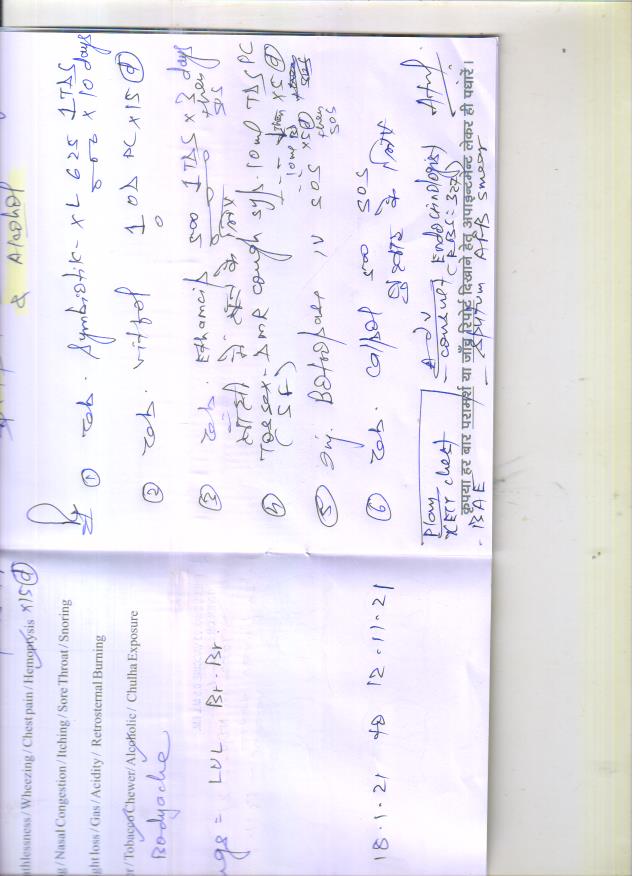 & Alcohol
Rx
① Tab. Symbiotik-XL 625 1 TDS x 10 days
② Tab. 1 OD PC x 15 d
③ Tab. Ethamcip 500 1 TDS x 3 days then SOS
खांसी में के लिए
④ Tossex-DMR cough syp. 10ml TDS PC
(SF)
- 10ml BD x 5 d then SOS
⑤ Inj. IV SOS
⑥ Tab. Calpol 500 SOS
बुखार के लिए
Plan
- Adv
XRay chest
- consult Endocrinologist
(RBS: 327)
कृपया हर बार परामर्श या जाँच रिपोर्ट दिखाने हेतु अपाइन्टमेन्ट लेकर ही पधारें।
- BAE
- Sputum AFB smear
athlessness / Wheezing / Chest pain / Hemoptysis x 15 d
g / Nasal Congestion / Itching / Sore Throat / Snoring
ght loss / Gas / Acidity / Retrosternal Burning
er / Tobacco Chewer / Alcoholic / Chulha Exposure
Bodyache
ngs = LUL Br. Br.
18.1.21 to 12.11.21